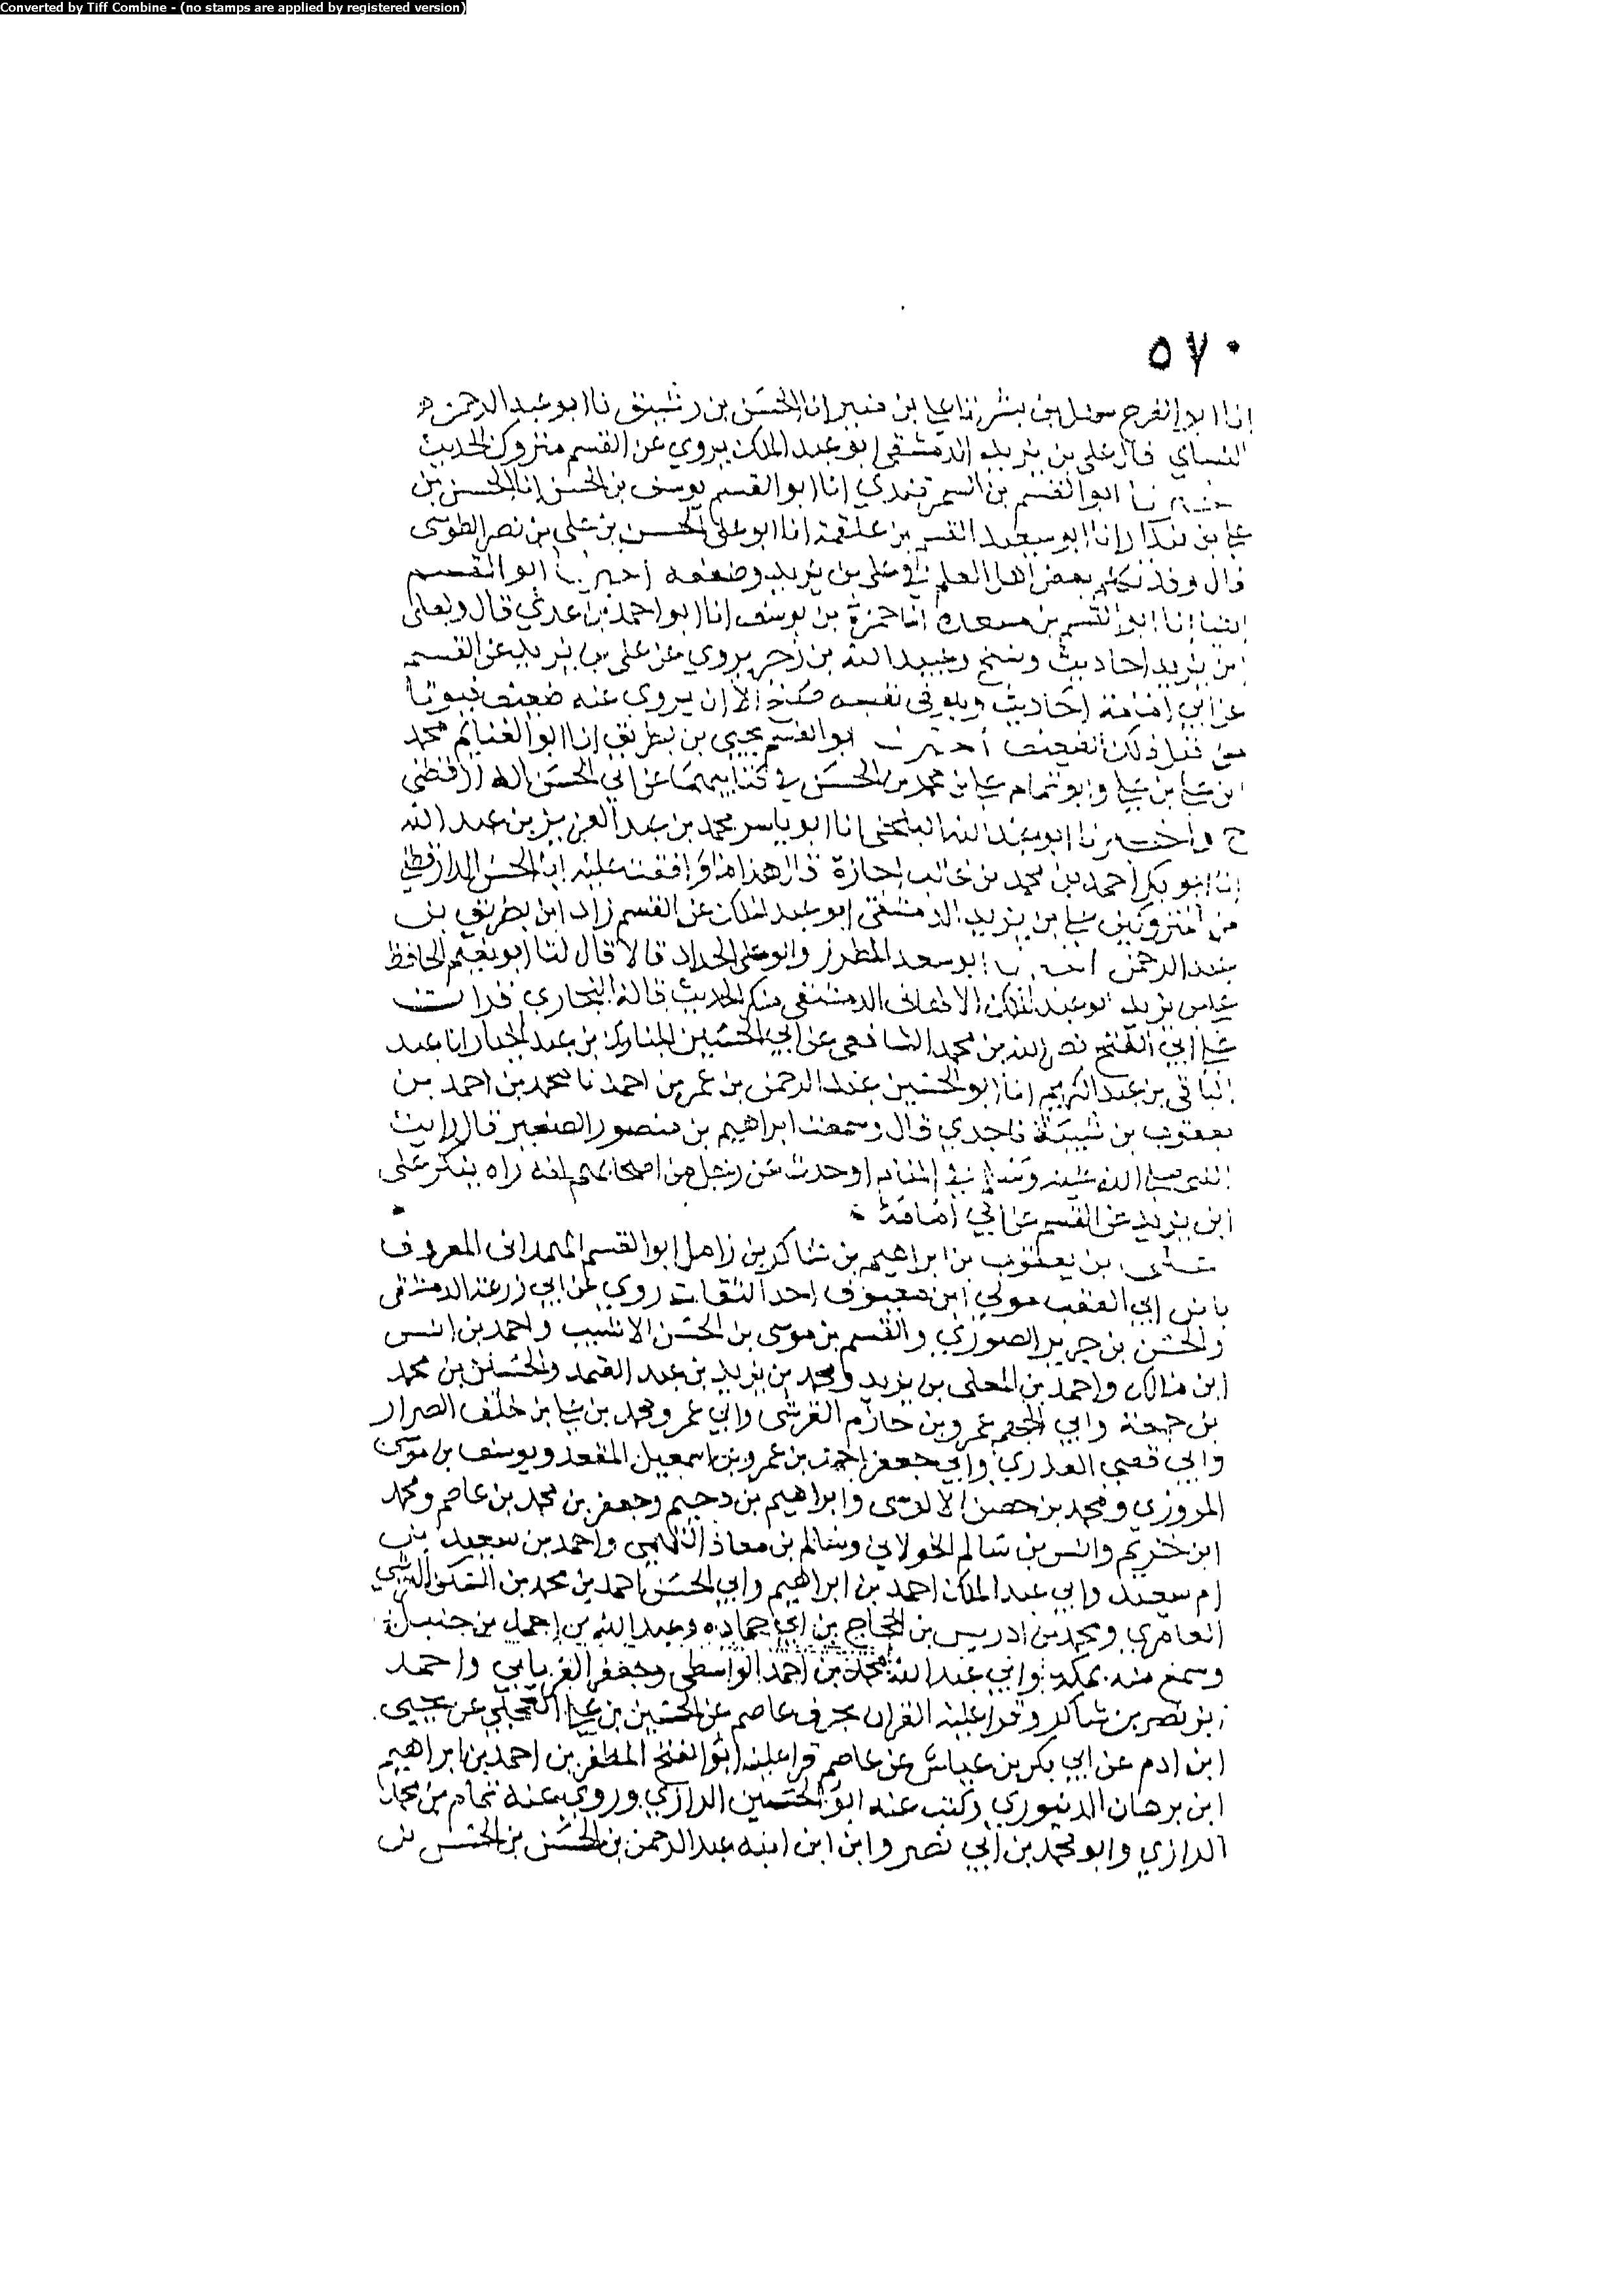 Converted by Tiff Combine - (no stamps are applied by registered version)
٥٧٠
انا ابو الفرج سهل بن بشر انا علي بن منير انا الحسن بن رشيق نا ابو عبد الرحمن
النساي قال علي بن يزيد الدمشقي ابو عبد الملك يروي عن القسم متروك الحديث
ابو القسم بن السمرقندي انا ابو القسم يوسف بن الحسن انا الحسن بن
علي بن بندار انا ابو سعيد القسم بن علقمة انا ابو علي الحسن بن علي بن نصر الطوسي
قال وقد تكلم بعض اهل العلم في علي بن يزيد وضعفه اخبرنا ابو القسم
ايضا انا ابو القسم بن مسعدة انا حمزة بن يوسف انا ابو احمد بن عدي قال ولعلي
بن يزيد احاديث ونسخ وعبيد الله بن زحر يروي عن علي بن يزيد عن القسم
عن ابي امامة احاديث وهو في نفسه صالح الا ان يروي عنه ضعيف فيوتا
من قبل ذلك الضعيف اخبرنا ابو القسم يحيى بن بطريق انا ابو الغنايم محمد
بن علي بن علي وابو تمام علي بن محمد بن الحسن في كتابيهما عن ابي الحسن الدارقطني
ح واخبرنا ابو عبد الله البلخي انا ابو ياسر محمد بن عبد العزيز بن عبد الله
انا ابو بكر احمد بن محمد بن غالب اجازة قال هذا ما وافقت عليه ابا الحسن الدارقطني
من المتروكين علي بن يزيد الدمشقي ابو عبد الملك عن القسم زاد ابن بطريق بن
عبد الرحمن ابو سعد المطرز وابو علي الحداد قالا قال لنا ابو نعيم الحافظ
علي بن يزيد ابو عبد الملك الالهاني الدمشقي منكر الحديث قاله البخاري قرات
علي ابي الفتح نصر الله بن محمد الشافعي عن ابي الحسين المبارك بن عبد الجبار انا عبد
الباقي بن عبد الكريم انا ابو الحسين عبد الرحمن بن عمر بن احمد نا محمد بن احمد بن
يعقوب بن شيبة نا جدي قال وسمعت ابراهيم بن منصور الصغير قال رايت
النبي صلى الله عليه وسلم في المنام او حدث عن رجل من اصحابهم انه راه ينكر على
ابن يزيد عن القسم عن ابي امامة
علي بن يعقوب بن ابراهيم بن شاكر بن زامل ابو القسم الهمداني المعروف
بابن ابي العقب مولي ابن معيوف احد الثقات روي عن ابي زرعة الدمشقي
والحسن بن جرير الصوري والقسم بن موسى بن الحسن الاشيب واحمد بن انس
ابن مالك واحمد بن المعلى بن يزيد ومحمد بن يزيد بن عبد الصمد والحسن بن محمد
بن جمعة وابي الجهم عمرو بن حازم القرشي وابي عمرو محمد بن علي بن خلف الصرار
وابي قصي العذري وابي جعفر احمد بن عمرو بن اسمعيل المقعد ويوسف بن موسى
المروزي ومحمد بن حصن الالوسي وابراهيم بن دحيم وجعفر بن محمد بن عاصم ومحمد
ابن خريم وانس بن سالم الخولاني وسالم بن معاذ التميمي واحمد بن سعيد بن
ام سعيد وابي عبد الملك احمد بن ابراهيم وابي الحسن احمد بن محمد بن السكن
العامري ومحمد بن ادريس بن الحجاج بن ابي حماده وعبد الله بن احمد بن حنبل
وسمع منه بمكة وابي عبد الله محمد بن احمد الواسطي وجعفر الفريابي واحمد
بن نصر بن شاكر وقرا عليه القران بحرف عاصم عن الحسين بن علي العجلي عن يحيى
ابن ادم عن ابي بكر بن عياش عن عاصم قرا عليه ابو الفتح المظفر بن احمد بن ابراهيم
ابن برهان الدنيوري وكتب عنه ابو الحسين الرازي وروى عنه تمام بن محمد
الرازي وابو محمد بن ابي نصر وابن ابن ابنه عبد الرحمن بن الحسن بن الحسن بن